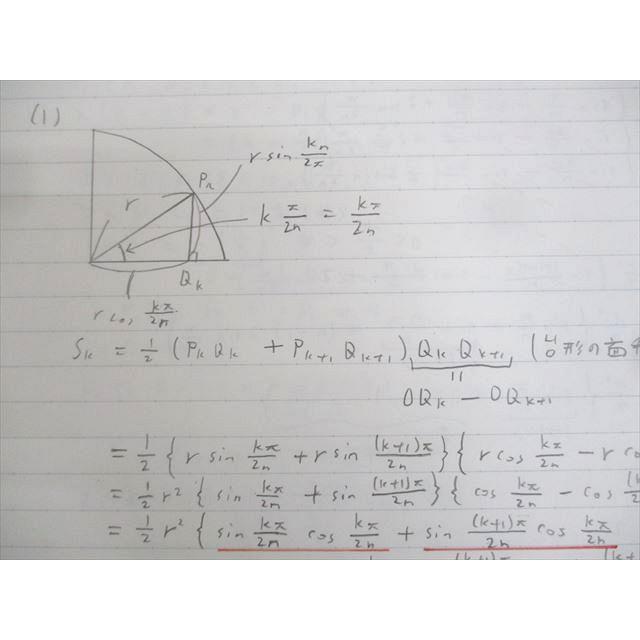 (1)
r sin kπ/2n
Pk
r
k π/2n = kπ/2n
Qk
r cos kπ/2n
Sk = 1/2 (PkQk + Pk+1Qk+1) QkQk+1 (台形の面
OQk − OQk+1
= 1/2 { r sin kπ/2n + r sin (k+1)π/2n } { r cos kπ/2n − r co
= 1/2 r² { sin kπ/2n + sin (k+1)π/2n } { cos kπ/2n − cos
= 1/2 r² { sin kπ/2n cos kπ/2n + sin (k+1)π/2n cos kπ/2n